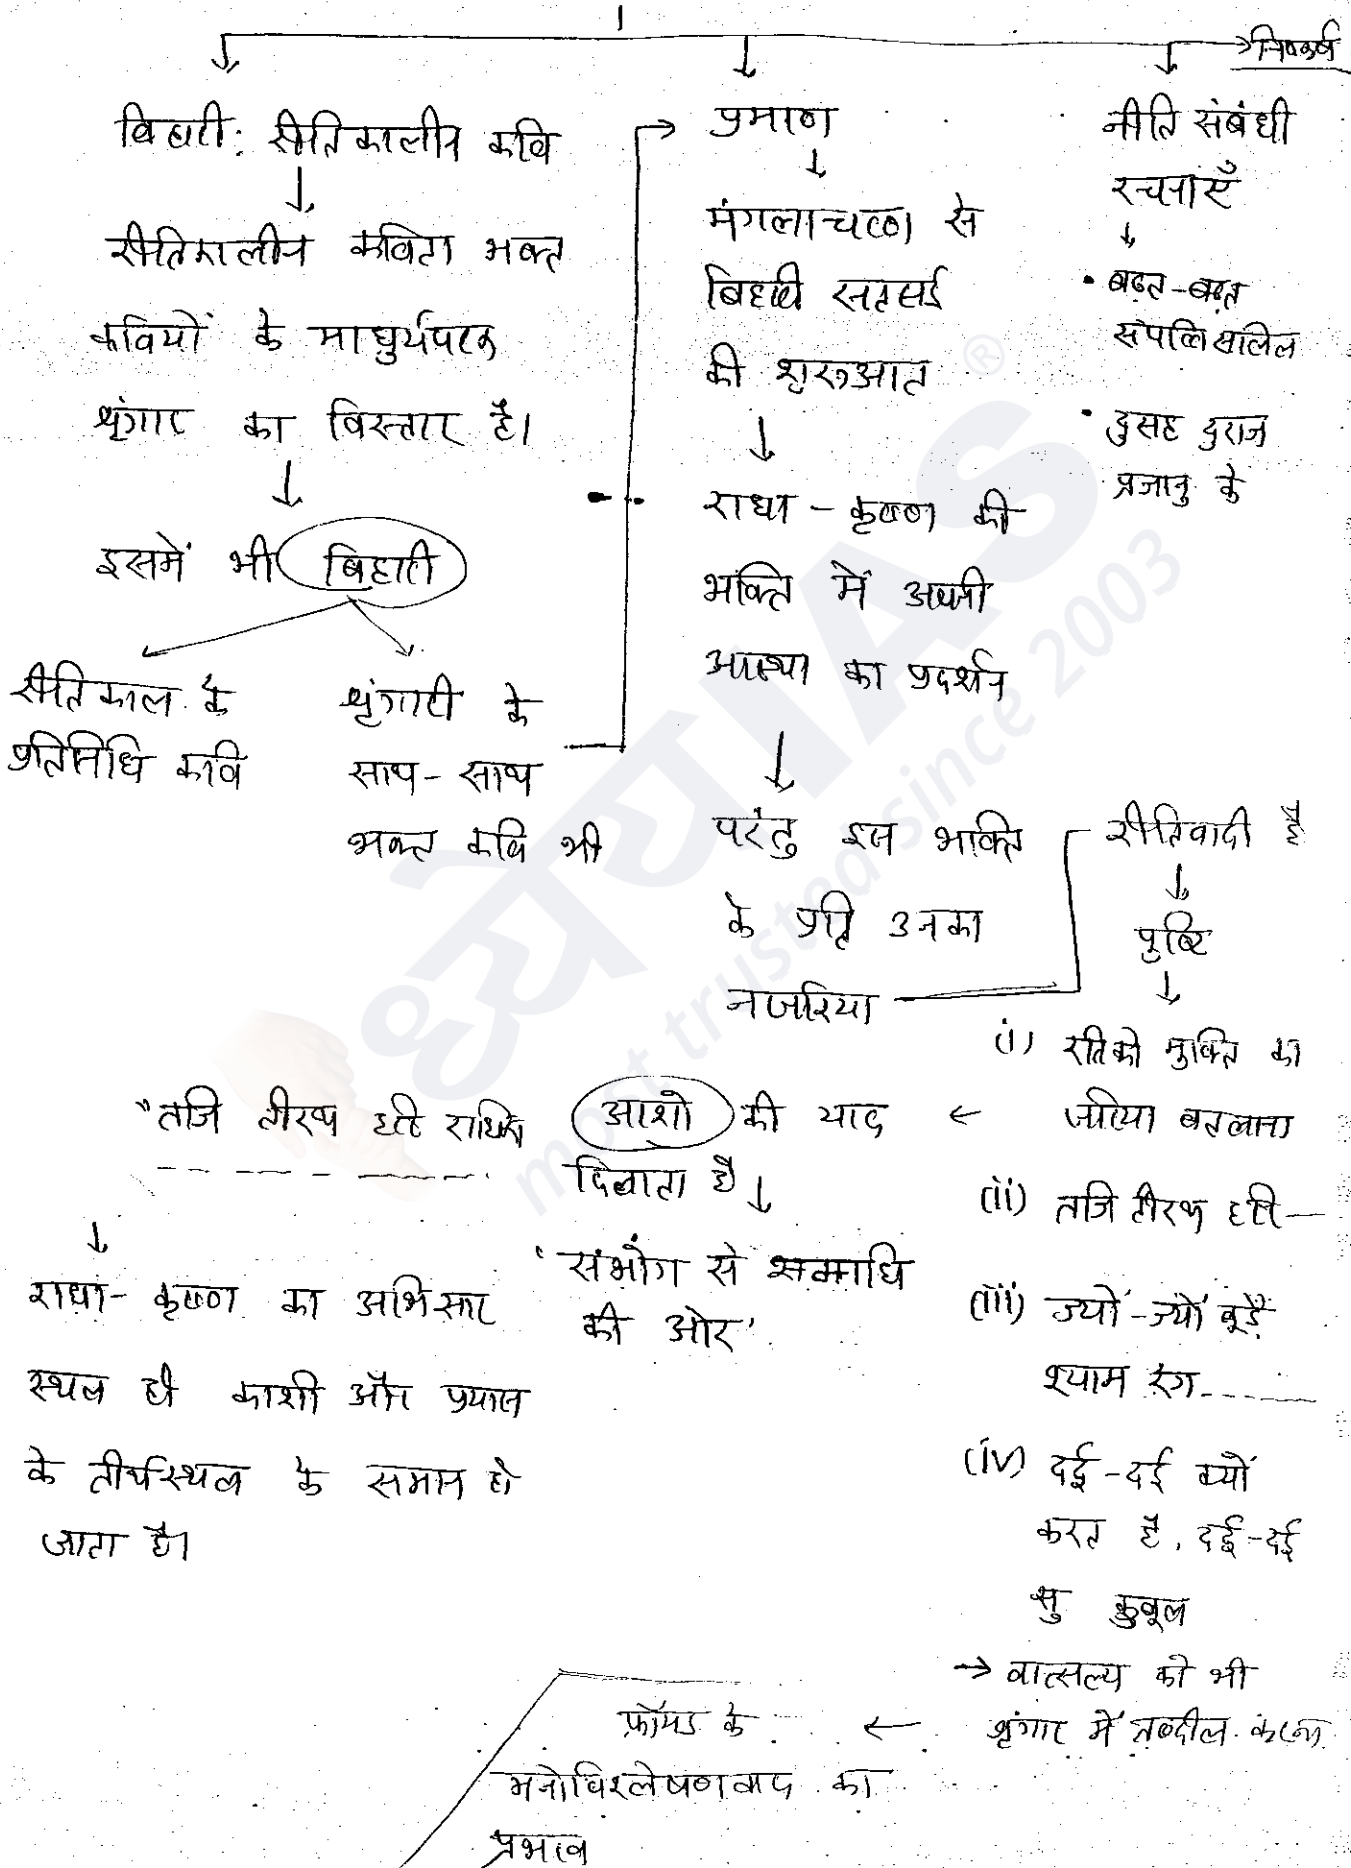 निष्कर्ष
बिहारी: रीतिकालीन कवि
रीतिकालीन कविता भक्त
कवियों के माधुर्यपरक
श्रृंगार का विस्तार है।
इसमें भी बिहारी
रीतिकाल के
प्रतिनिधि कवि
श्रृंगारी के
साथ-साथ
भक्त कवि भी
प्रमाण
मंगलाचरण से
बिहारी सतसई
की शुरुआत
राधा-कृष्ण की
भक्ति में अपनी
आस्था का प्रदर्शन
परंतु इस भक्ति
के प्रति उनका
नजरिया
नीति संबंधी
रचनाएँ
• बढ़त-बढ़त
संपत्ति सलिल
• दुसह दुराज
प्रजानु के
रीतिवादी है
पुष्टि
(i) रति को मुक्ति का
जरिया बतलाना
(ii) तजि तीरथ हरि—
(iii) ज्यों-ज्यों बूड़ै
श्याम रंग
(iv) दई-दई क्यों
करत है, दई-दई
सु कुबूल
→ वात्सल्य को भी
श्रृंगार में तब्दील करना
आशो की याद
दिलाता है
'संभोग से समाधि
की ओर'
"तजि तीरथ हरि राधिका
राधा-कृष्ण का अभिसार
स्थल ही काशी और प्रयाग
के तीर्थस्थल के समान हो
जाता है।
फ्रॉयड के
मनोविश्लेषणवाद का
प्रभाव
ध्येयIAS®
most trusted since 2003